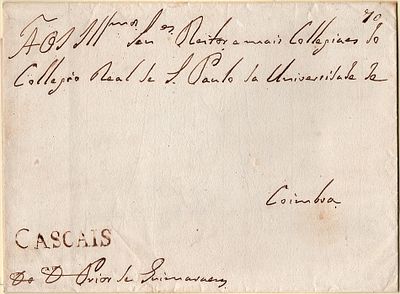 70
Aos Ill.mos Sen.es Reitor e mais Collegiaes do
Collegio Real de S. Paulo da Universidade de
Coimbra
CASCAIS
Do D Prior de Guimaraens